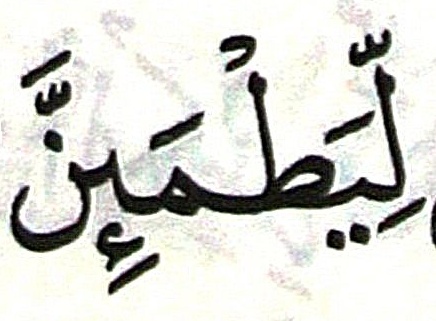 لِّيَطْمَئِنَّ